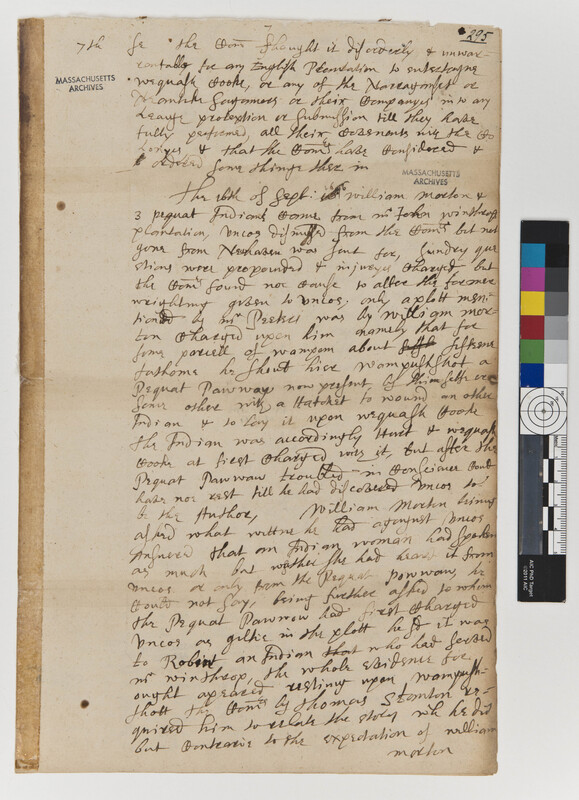 295
7th Se the Com: thought it disorderly & unwar-
rantable for any English Plantation to entertayne
MASSACHUSETTS
ARCHIVES
wequash Cooke, or any of the Narraganset or
Nyantick Sagamors or their Companyes into any
league protection or submission till they have
fully performed, all their Covenants with the Co
lonyes & that the Com: have considered &
ordered some things therin
MASSACHUSETTS
ARCHIVES
The 16th of Sept: William Morton &
3 pequat Indians Came from mr John winthrops
plantation, Uncos dismissed from the Com: but not
gone from Newhaven was sent for, sundry que
stions were propounded & injuryes Charged, but
the Com: found noe Cause to alter the former
wrighting given to Uncos, only a plott men-
tioned by mr was by William mor-
ton Charged upon him namely that for
some parcell of wampom about fifteene
fathome he should hier wampushshot a
Pequat Pawwaw now present by himselfe or
some other with a Hatchet to wound an other
Indian & to lay it upon wequash Cooke
the Indian was accordingly hurt & wequash
Cooke at first Charged with it, but after the
Pequat Pawwaw troubled in Conscience Could
have noe rest till he had discovered Uncos to
be the Author, William Morton being
asked what wittnes he had against Uncos
Answered that an Indian woman had spoken
as much but whether she had heard it from
Uncos or only from the Pequat Powwow, he
Could not say, being further asked to whom
the Pequat Pawwow had first Charged
Uncos as giltie in the plott he sd it was
to Robin an Indian who had served
mr winthrop, the whole evidence for
ought apeared resting upon wampush-
shott the Com: by Thomas Stanton re-
quired him to relate the story wch he did
but Contrarie to the expectation of william
morton